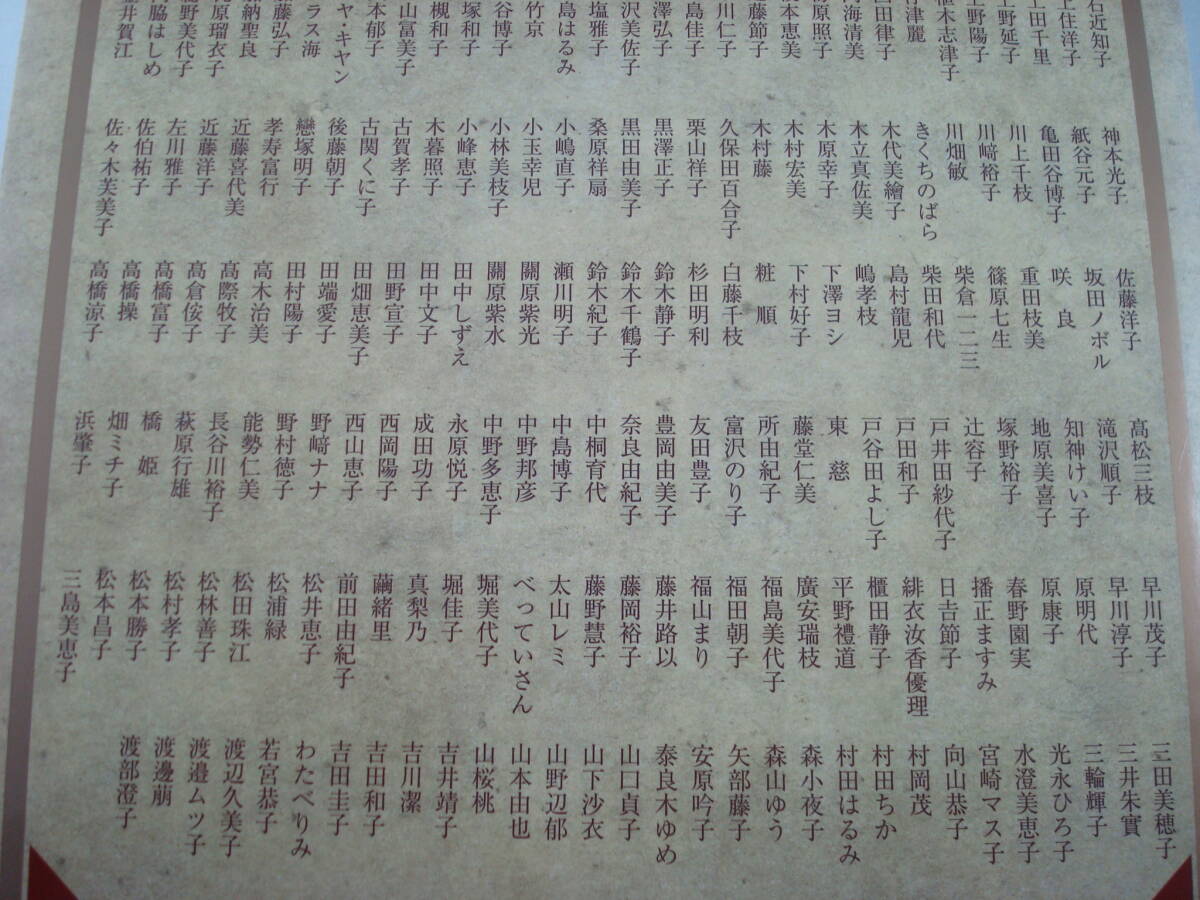 神本光子
紙谷元子
亀田谷博子
川上千枝
川﨑裕子
川畑敏
きくちのばら
木代美繪子
木立真佐美
木原幸子
木村宏美
木村藤
久保田百合子
栗山祥子
黒澤正子
黒田由美子
桑原祥扇
小嶋直子
小玉幸児
小林美枝子
小峰恵子
木暮照子
古賀孝子
古関くに子
後藤朝子
戀塚明子
孝寿富行
近藤喜代美
近藤洋子
左川雅子
佐伯祐子
佐々木美美子
佐藤洋子
坂田ノボル
咲良
重田枝美
篠原七生
柴倉一二三
柴田和代
島村龍児
嶋孝枝
下澤ヨシ
下村好子
粧順
白藤千枝
杉田明利
鈴木静子
鈴木千鶴子
鈴木紀子
瀬川明子
關原紫光
關原紫水
田中しずえ
田中文子
田野宣子
田畑恵美子
田端愛子
田村陽子
高木治美
高際牧子
高倉侫子
高橋富子
高橋操
高橋涼子
高松三枝
滝沢順子
知神けい子
地原美喜子
塚野裕子
辻容子
戸井田紗代子
戸田和子
戸谷田よし子
東慈
藤堂仁美
所由紀子
富沢のり子
友田豊子
豊岡由美子
奈良由紀子
中桐育代
中島博子
中野邦彦
中野多恵子
永原悦子
成田功子
西岡陽子
西山恵子
野﨑ナナ
野村徳子
能勢仁美
長谷川裕子
萩原行雄
橋姫
畑ミチ子
浜肇子
早川茂子
早川淳子
原明代
原康子
春野園実
播正ますみ
日吉節子
緋衣汝香優理
櫃田静子
平野禮道
廣安瑞枝
福島美代子
福田朝子
福山まり
藤井路以
藤岡裕子
藤野慧子
太山レミ
べっていさん
堀美代子
堀佳子
真梨乃
繭緒里
前田由紀子
松井恵子
松浦緑
松田珠江
松林善子
松村孝子
松本勝子
松本昌子
三島美恵子
三田美穂子
三井朱實
三輪輝子
光永ひろ子
水澄美恵子
宮崎マス子
向山恭子
村岡茂
村田ちか
村田はるみ
森小夜子
森山ゆう
矢部藤子
安原吟子
泰良木ゆめ
山口貞子
山下沙衣
山野辺郁
山本由也
山桜桃
吉井靖子
吉川潔
吉田和子
吉田圭子
わたべりみ
若宮恭子
渡辺久美子
渡邉ムツ子
渡邊萠
渡部澄子